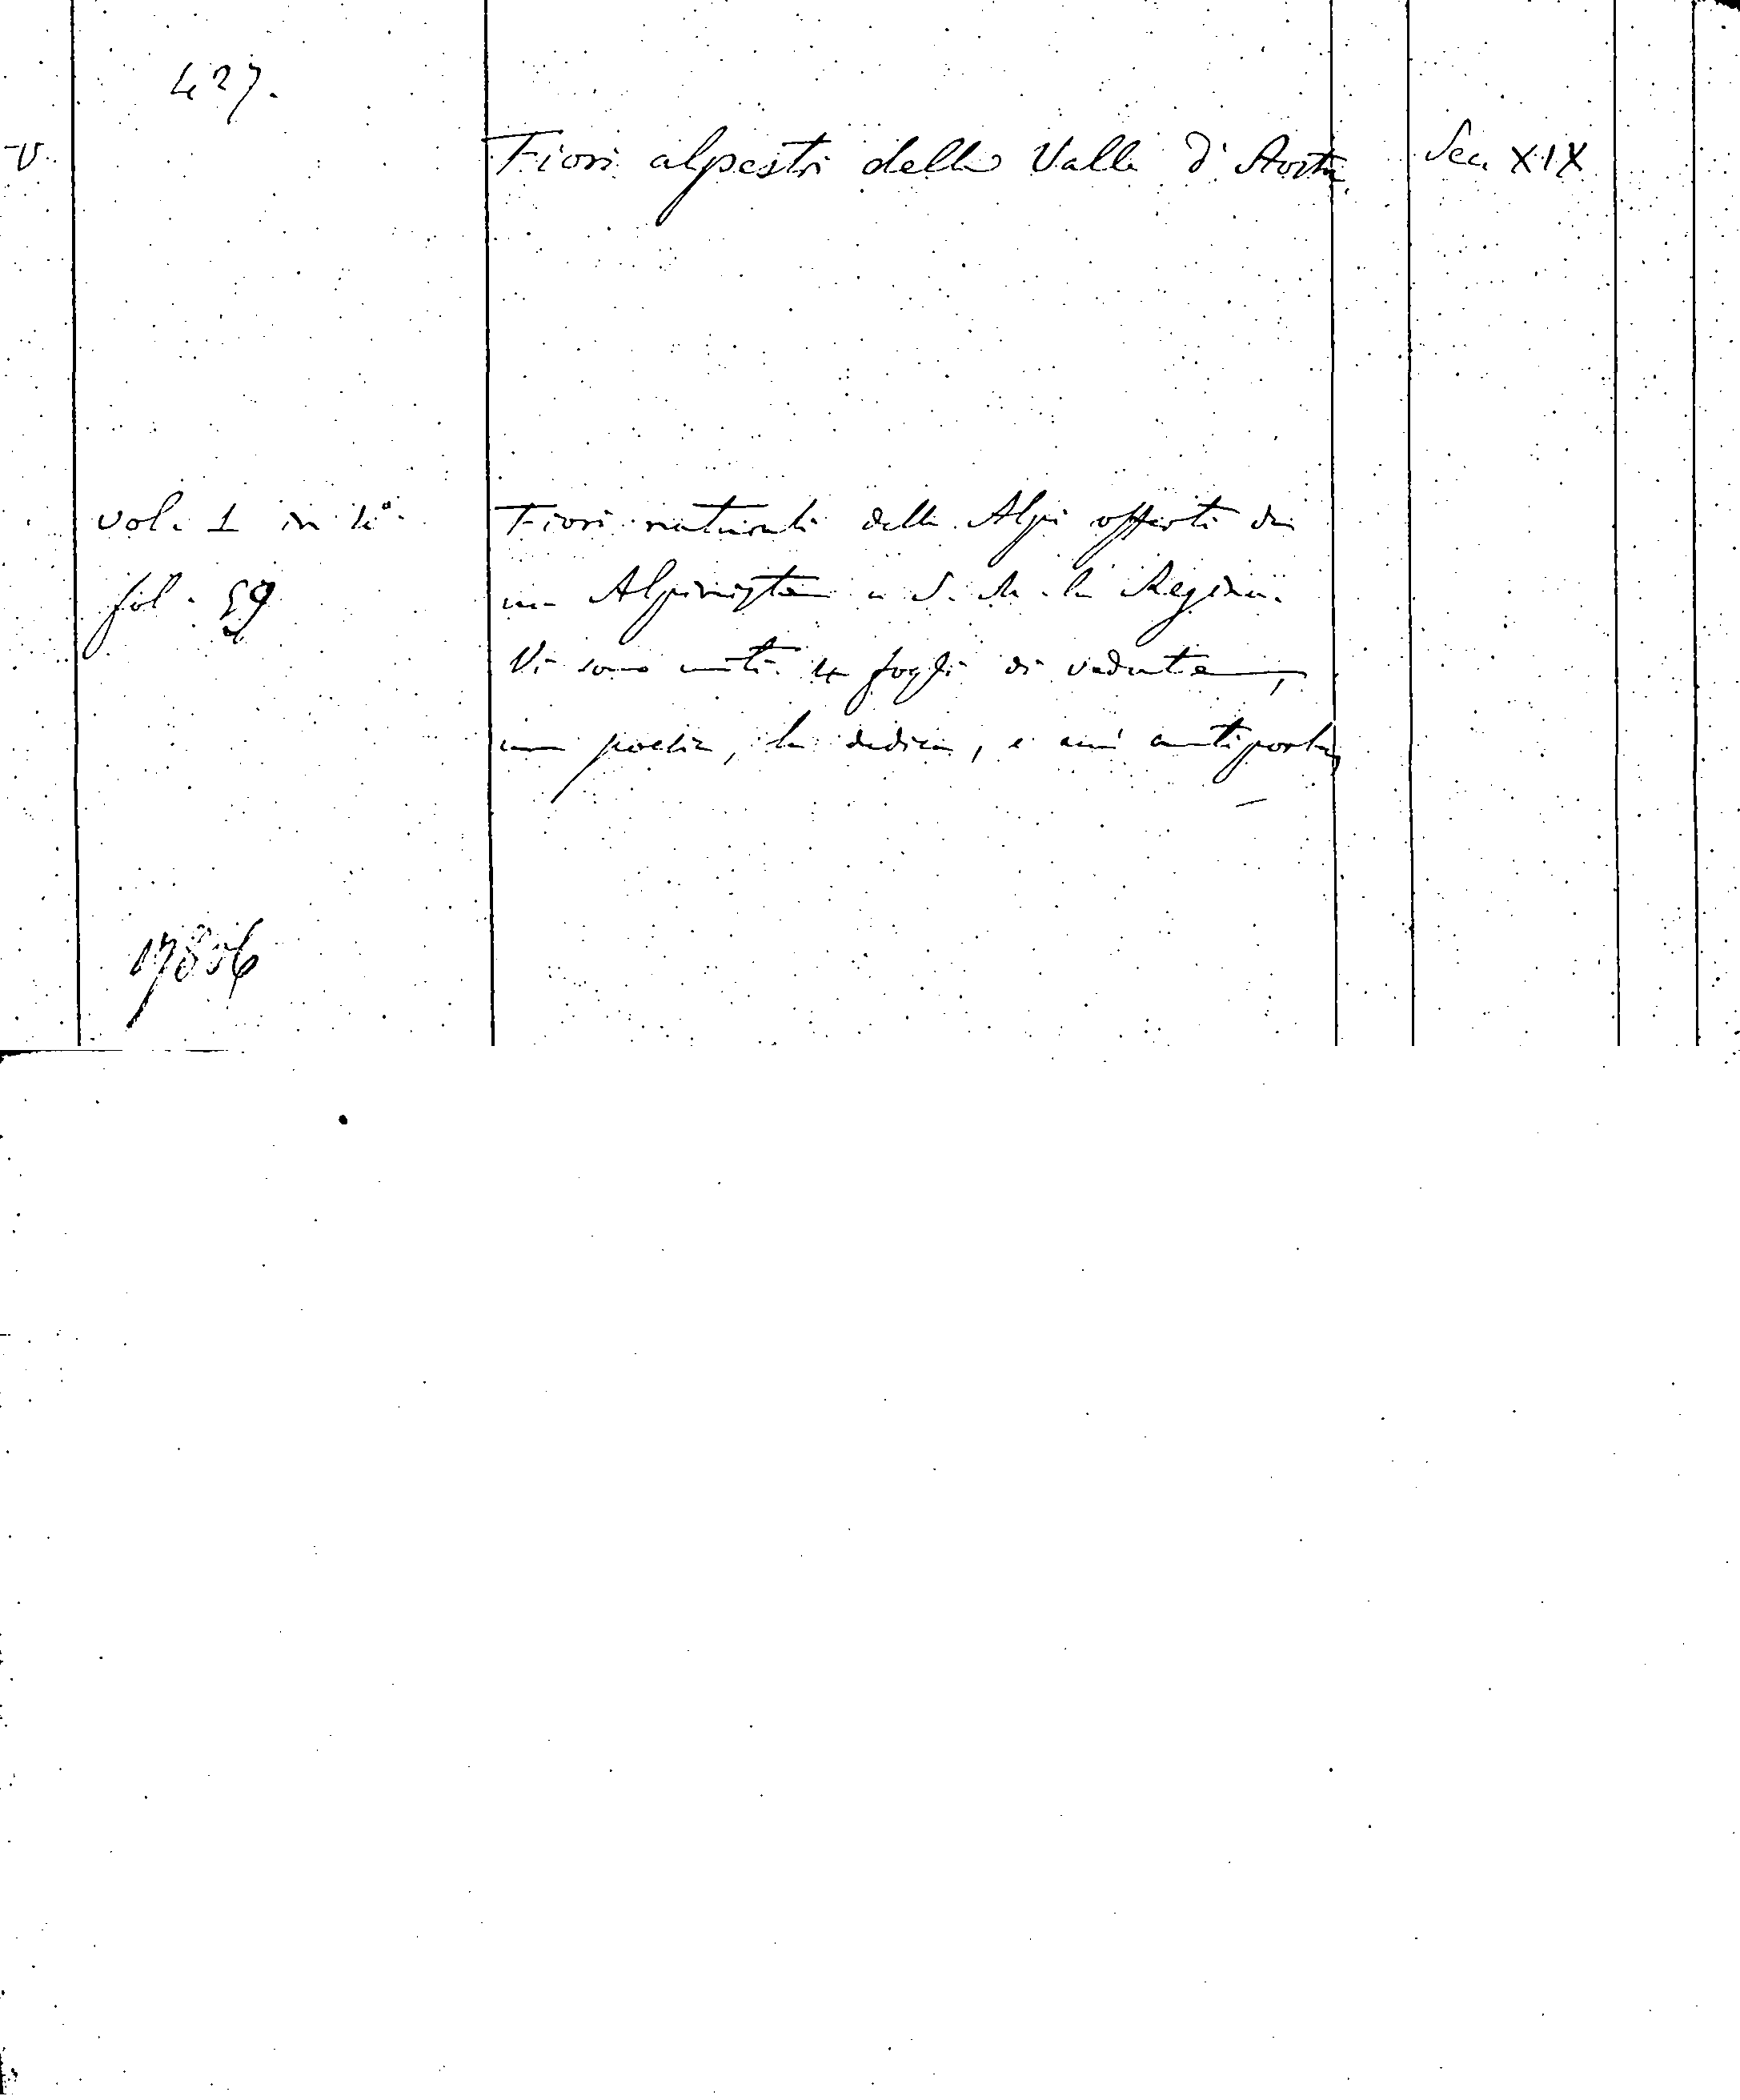 427.
V. Fiori alpestri della Valle d'Aosta Sec. XIX
vol. 1 in 4°. Fiori naturali delle Alpi offerti da
fol. 59 un Alpinista a S. M. la Regina.
Vi sono uniti 4 fogli di vedute,
una poesia, la dedica, e un' antiporta
17806